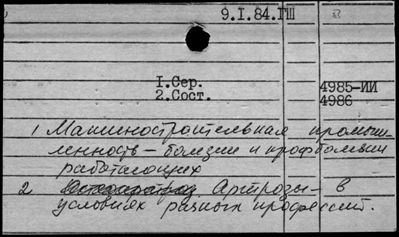 9.I.84.ГШ В
I.Сер. 4985-ИИ
2.Сост. 4986
1 Машиностроительная промыш-
ленность – болезни и профболезни
работающих
2 Артрозы – в
условиях разных профессий.